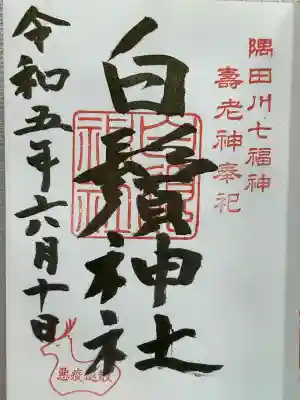 隅田川七福神
壽老神奉祀
白鬚神社
令和五年六月十日
悪疫退散